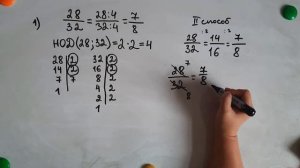 1) 28/32 = 28:4/32:4 = 7/8
НОД(28;32)=2·2=4
28 | 2
14 | 2
7 | 7
1
32 | 2
16 | 2
8 | 2
4 | 2
2 | 2
1
II способ
28/32 :2 = 14/16 :2 = 7/8
28 7/32 8 = 7/8